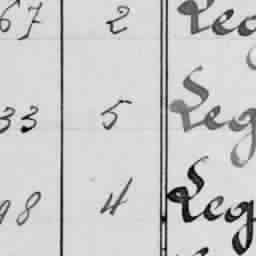 67 2 Leg
33 5 Leg
98 4 Leg